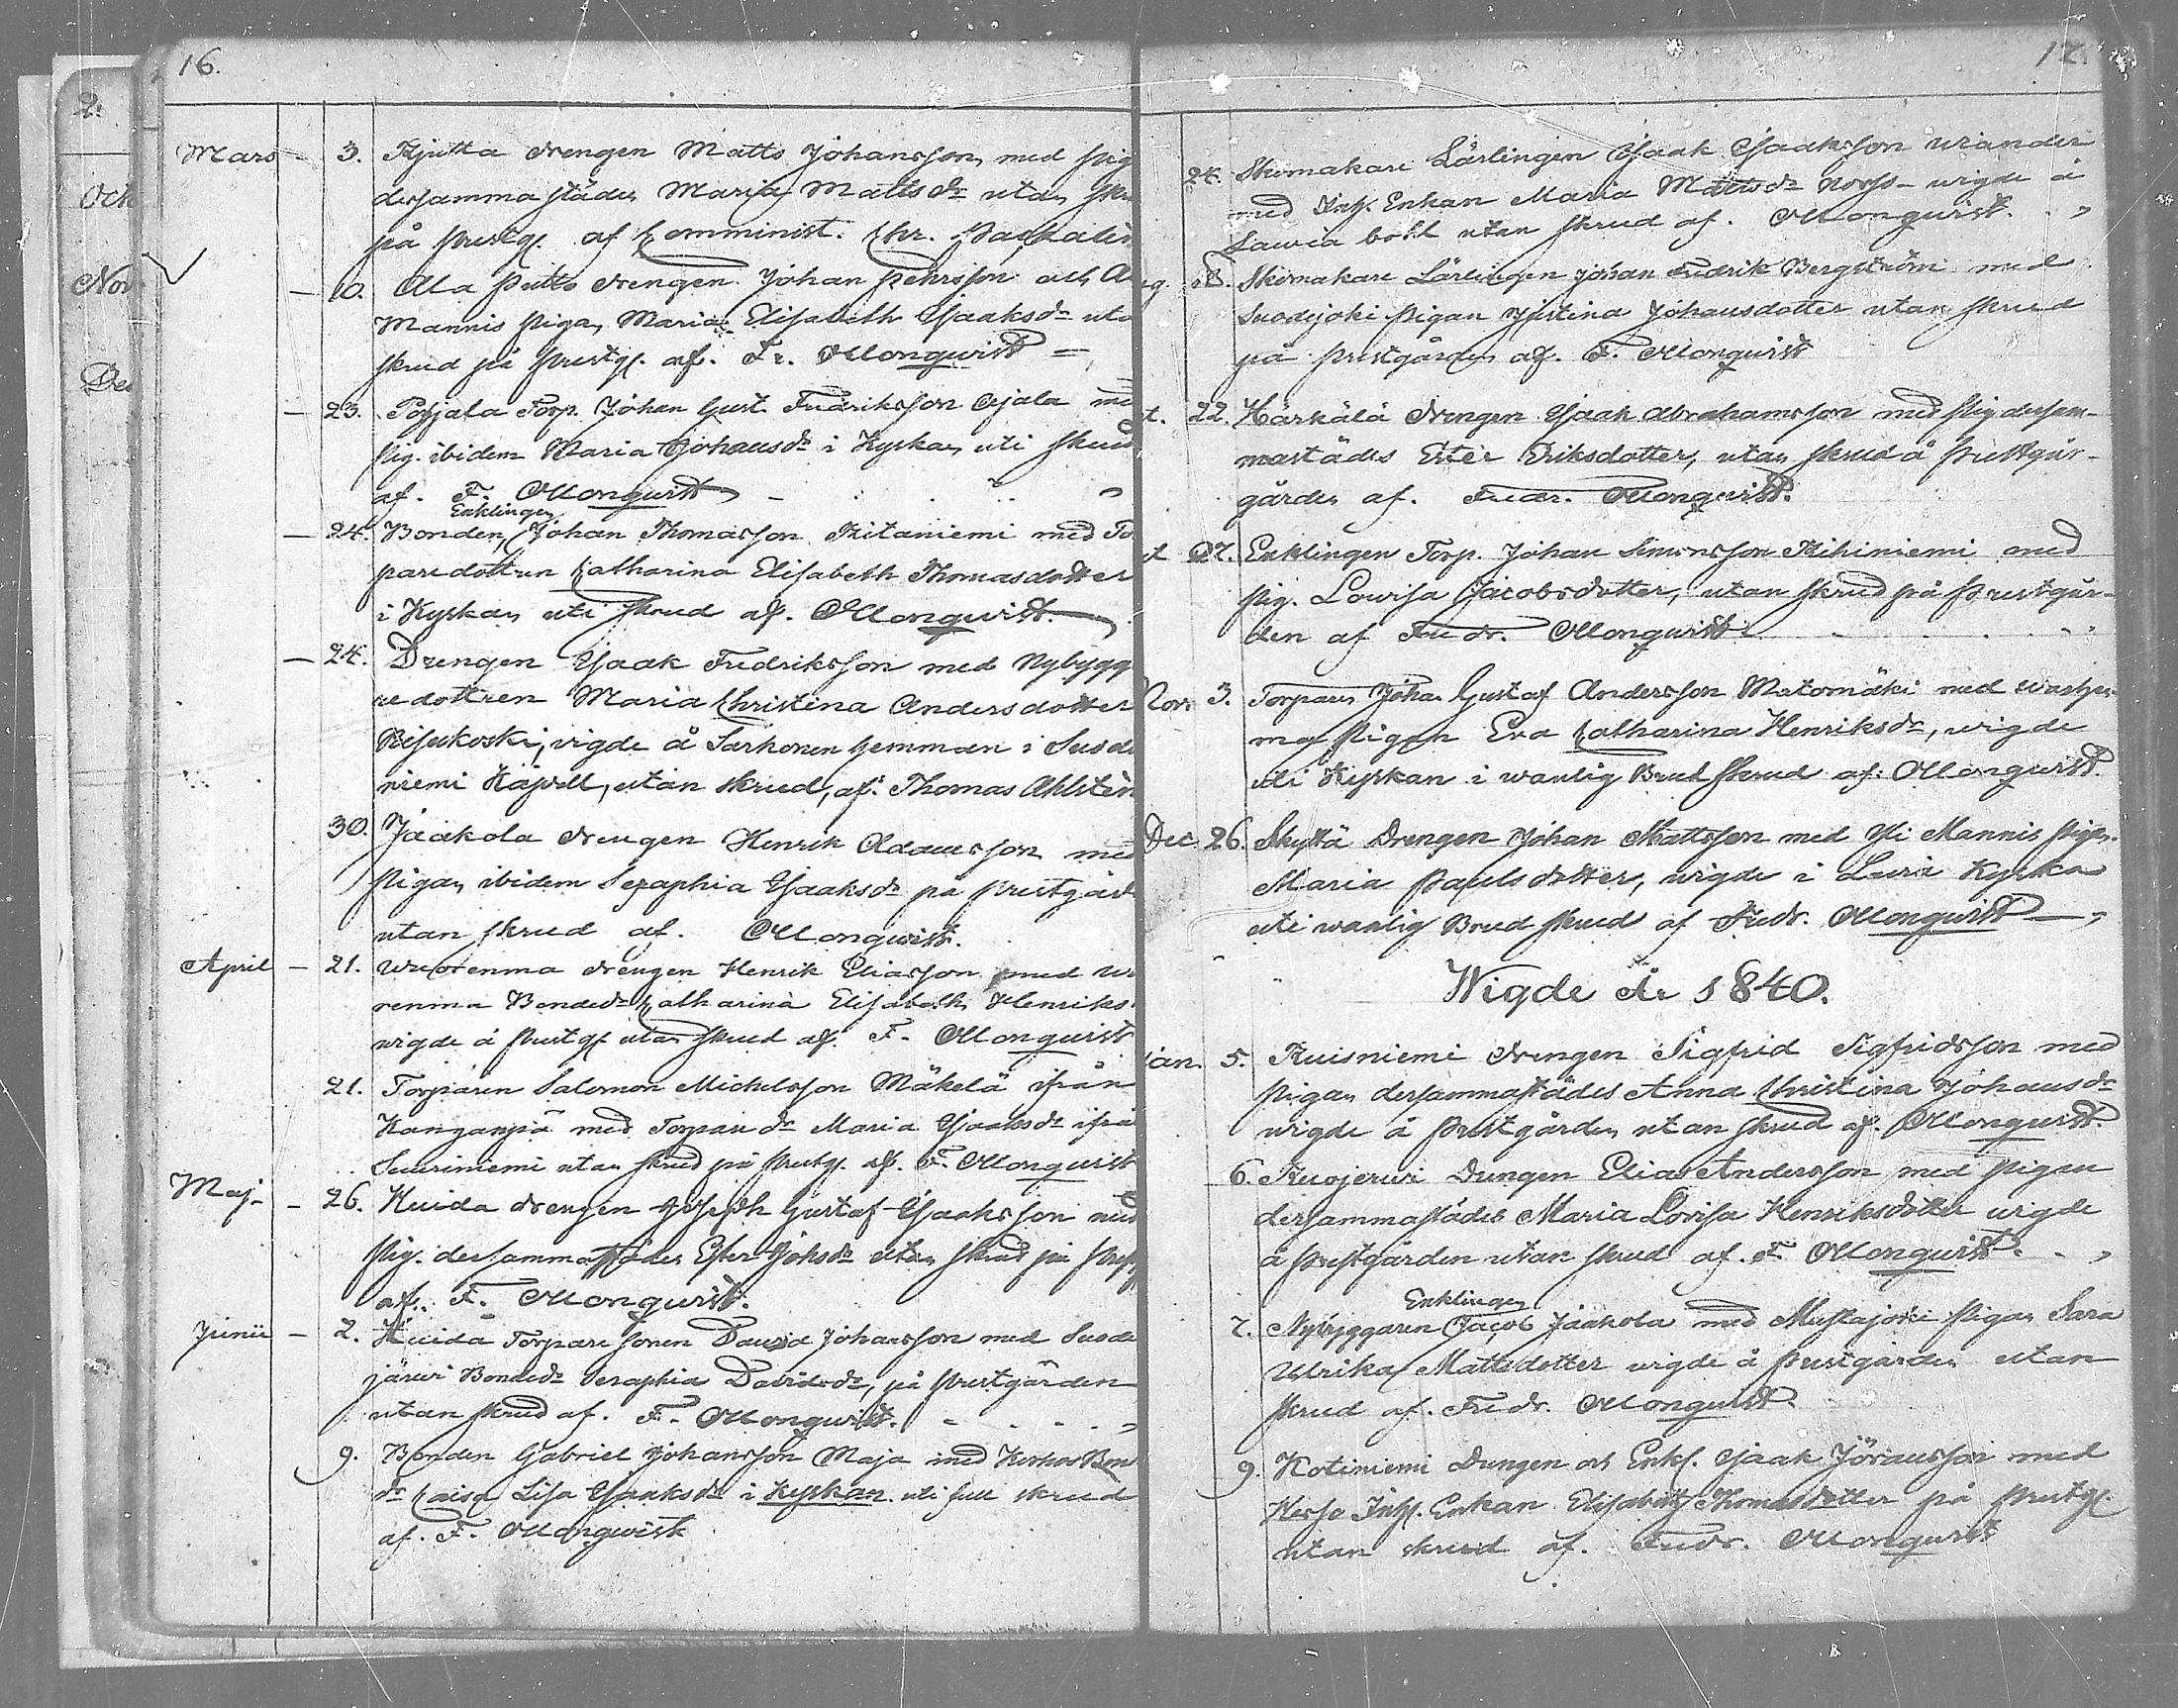 16.
Mars - 3. Kjutta drengen Matts Johansson med pig
dersammastädes Maria Mattsdr utan skr
på prestg. af Comminist. Chr.
- 10. Ala Putto drengen Johan Pehrsson och A
Mannis Pigan Maria Elisabeth Isaaksdr uta
skrud på prestg. af. Fr. Monqwist
- 23. Pohjala Torp. Johan Gust. Fredriksson Ojala med
pig. ibidem Maria Johansdr i Kyrkan uti skrud
af. F. Monqwist
Enklingen
- 24. Bonden, Johan Thomasson Kitaniemi med To
paredottren Catharina Elisabeth Thomasdotter
i Kyrkan uti skrud af. Monqwist.
- 24. Drengen Isaak Fredriksson med Nybygg
redottren Maria Christina Andersdotter
vigde å Sarkonen hemman i Suode
niemi Kapell, utan skrud, af. Thomas Ahlstén
30. Jaakola drengen Henrik Adamsson med
Pigan ibidem Seraphia Isaaksdr på prestgård
utan skrud af. Monqwist.
April - 21. Wuorenma drengen Henrik Eliasson med Wu
renma Bondedr Catharina Elisabeth Henriks
wigde å prestg utan skrud af. F. Monqwist
21. Torparen Salomon Michelsson Mäkelä ifrån
Kanganpä med Torparedr Maria Isaaksdr ifrå
Suuriniemi utan skrud på prestg. af. F. Monqwist
Maj - 26. Huida drengen Joseph Gustaf Isaaksson med
pig. dersammastädes Ester Johsdr utan skrud på prestg
af. F. Monqwist.
Junii - 2. Huida Torpare sonen David Johansson med Suode
järwi Bondedr Seraphia Davidsdr, på prestgården
utan skrud af. F. Monqwist.
9. Bonden Gabriel Johansson Maja med Bon
dr Caisa Lisa Isaaksdr i Kyrkan uti full skrud
af. F. Monqwist
17.
24. Skomakare Lärlingen Isaak Isaaksson Wiander
med Inh. Enkan Maria Mattsdr Norss - wigde å
Lawia boll utan skrud af. Monqwist.
18. Skomakare Lärlingen Johan Fredrik Bergström med
Suodejoki Pigan Justina Johansdotter utan skrud
på prestgården af. F. Monqwist
t. 22. Härkälä drengen Isaak Abrahamsson med pig dersam-
mastädes Ester Eriksdotter, utan skrud å Prestgår-
gården af. Fredr. Monqwist.
t 27. Enklingen Torp. Johan Simonsson Kihiniemi med
pig. Lowisa Jacobsdotter, utan skrud på prestgår-
den af Fredr. Monqwist
Nov. 3. Torparen Johan Gustaf Andersson Matomäki med
ma pigan Eva Catharina Henriksdr, wigde
uti Kyrkan i wanlig Brud skrud af. Monqwist.
Dec. 26. Skyttä Drengen Johan Mattsson med Yli Mannis pigan
Maria Paulsdotter, wigde i Lavia Kyrka
uti wanlig Brud skrud af Fredr. Monqwist
Wigde År 1840.
Jan. 5. Kuisniemi drengen Sigfrid Sigfridsson med
Pigan dersammastädes Anna Christina Johansdr
wigde å Prestgården utan skrud af. Monqwist
6. Kuojerwi Drengen Elias Andersson med Pigan
dersammastädes Maria Lovisa Henriksdotter wigde
å prestgården utan skrud af. F. Monqwist.
Enklingen
7. Nybyggaren Jacob Jaakola med Mustajoki Pigan Sara
Ulrika Mattsdotter wigde å prestgården utan
skrud af. Fredr. Monqwist.
9. Kotiniemi Drengen och Enkl. Isaak Jöransson med
Inh. Enkan Elisabeth Thomasdotter på prestg.
utan skrud af. Fredr. Monqwist
2.
Och
Nov
Dec